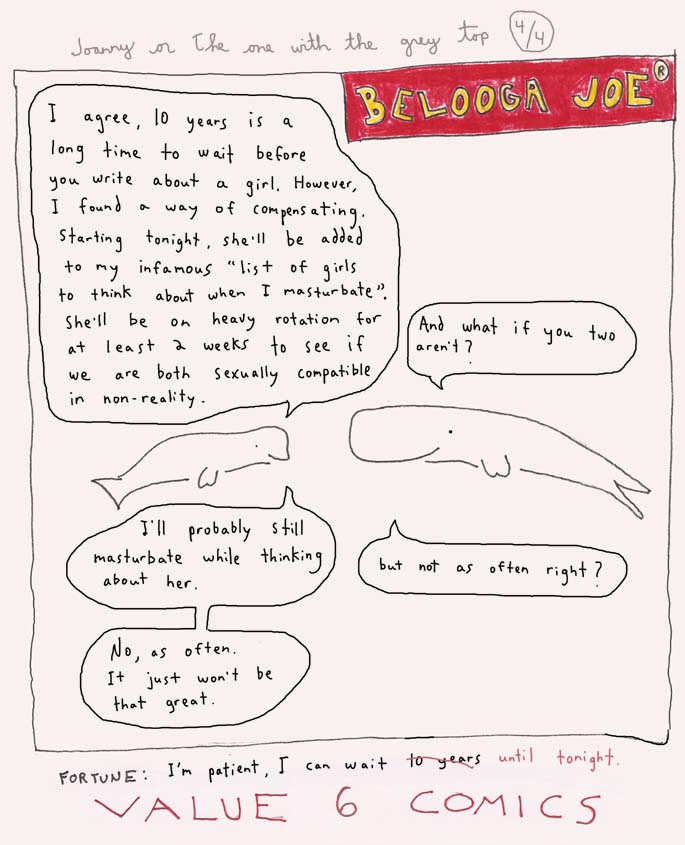 Joanny or The one with the grey top 4/4
BELOOGA JOE®
I agree, 10 years is a
long time to wait before
you write about a girl. However,
I found a way of compensating.
Starting tonight, she'll be added
to my infamous "list of girls
to think about when I masturbate".
She'll be on heavy rotation for
at least 2 weeks to see if
we are both sexually compatible
in non-reality.
And what if you two
aren't?
I'll probably still
masturbate while thinking
about her.
but not as often right?
No, as often.
It just won't be
that great.
FORTUNE: I'm patient, I can wait 10 years until tonight.
VALUE 6 COMICS